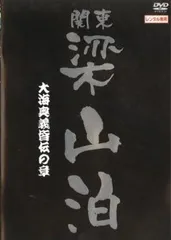 関東
梁山泊
大海奥義皆伝の章
DVD
レンタル専用